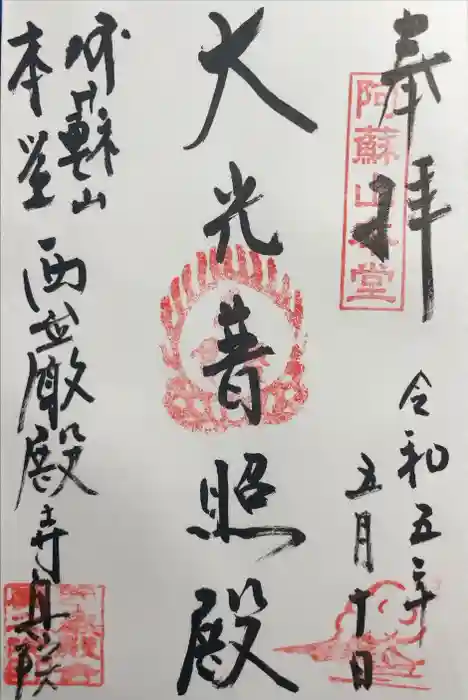 奉拝
阿蘇山本堂
令和五年
五月十日
大光普照殿
阿蘇山
本堂
西巌殿寺奥之院